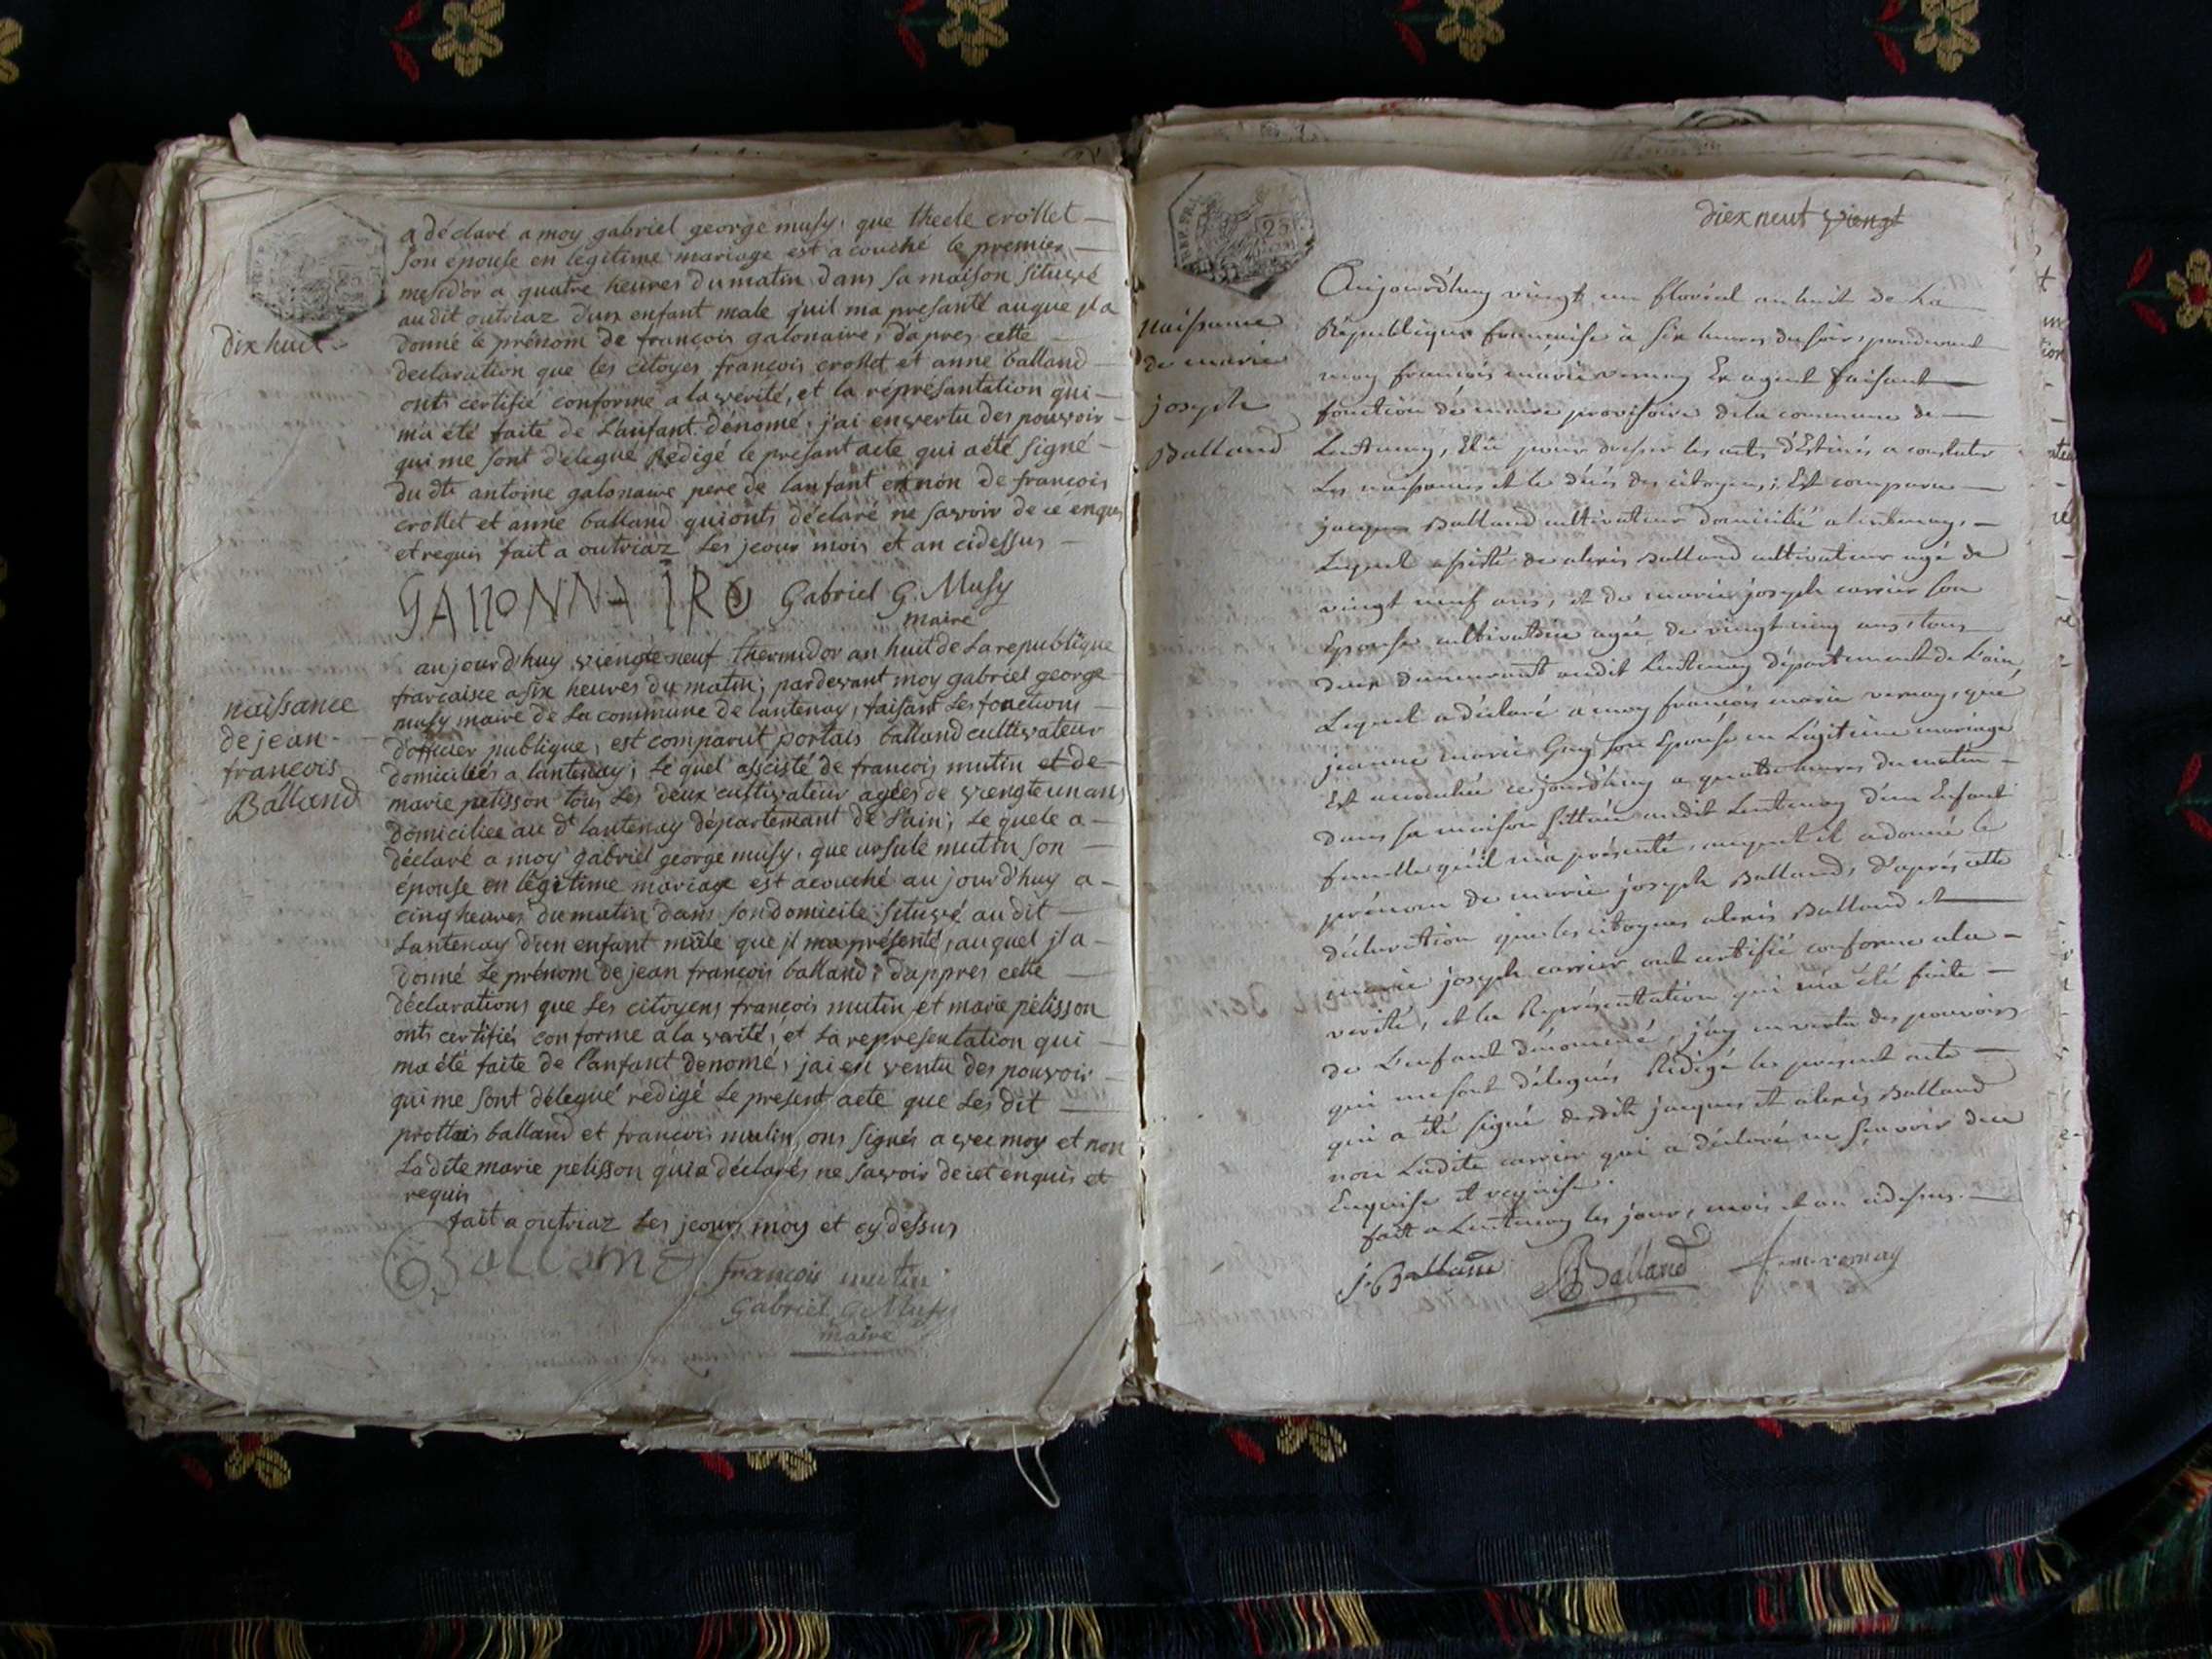 a déclaré a moy gabriel george musy, que thecle crollet
son épouse en legitime mariage est acouché le premier
mesidor a quatre heures du matin dans sa maison situyé
audit outriaz dun enfant male quil ma presanté auque jl a
dix huit
donné le prénom de françois galonaire, d'apres cette
declaration que les citoyes françois crollet et anne balland
onts certifié conforme a la verité, et la répresantation qui
ma été faite de L'anfant dénomé, j'ai en vertu des pouvoir
qui me sont délegué Rédigé le présant acte qui a été signé
du dte antoine galonaire pere de lanfant et non de francois
crollet et anne balland qui onts déclaré ne savoir de ce enquis
et requis fait a outriaz Les jeour mois et an cidessus
GALLONNAIRO Gabriel G. Musy
maire
aujourd'huy viengte neuf thermidor an huit de La republique
francaise a six heures du matin; pardevant moy gabriel george
naissance
musy maire de La commune de lantenay, faisant Les fonctions
de jean
d'officier publique, est comparut portais balland cultivateur
francois
domiciliés a lantenay; Le quel assisté de francois mutin et de
Balland
marie petisson tous Les deux cultivateur agées de viengte un ans
domiciliée au dt lantenay département de L'ain; Le quele a
déclaré a moy gabriel george musy, que ursule mutin son
épouse en légitime mariage est acouché aujourd'huy a
cinq heures du matin dans son domicile situyé audit
Lantenay d'un enfant mâle que jl ma présenté, auquel jl a
donné Le prénom de jean françois balland; d'appres cette
déclarations que Les citoyens françois mutin et marie pelisson
onts certifiés conforme a la varité, et La representation qui
ma été faite de l'anfant denomé, jai en ventu des pouvoir
qui me sont délegué rédigé Le present acte que Les dit
prottais balland et francois mutin ons signés avec moy et non
Ladite marie pelisson qui a déclarés ne savoir de cet enquis et
requis
fait a outriaz Les jeours moy et cy dessus
Balland françois mutin
Gabriel G Musy
maire
diex neuf viengt
Aujourd'huy vingt un floréal an huit de La
naissance
République françoise à six heures du soir, pardevant
de marie
moy françois marie vernay Ex agent faisant
joseph
fonction de maire provisoire de la commune de
Balland
Lantenay, Elû pour dresser les actes d'Estinés a constater
Les naissances et le décés des citoyens; Est comparu
jacques Balland cultivateur domicilié a lantenay,
Lequel assisté de alexis Balland cultivateur agé de
vingt neuf ans, et de marie joseph carrier son
Epouse cultivatrice agée de vingt cinq ans, tous
deux demeurant audit Lantenay département de L'ain,
Lequel a déclaré a moy françois marie vernay, que
jeanne marie Guy son Epouse en Légitime mariage
Est acouchée cejourdhuy a quatre heures du matin
dans sa maison sittuée audit Lantenay d'un Enfant
femelle qu'il m'a présenté, auquel il a donné le
prénom de marie joseph Balland, d'aprés cette
déclaration que les citoyens alexis Balland et
marie joseph carrier ont certifié conforme a la
verité, et la Représentation qui m'a été faite
de L'enfant dénommé, j'ay en vertu des pouvoirs
qui me sont délegués Rédigé les présent acte
qui a été signé desdits jacques et alexis Balland
non Ladite carrier qui a déclaré ne scavoir de ce
Enquise et requise.
fait a Lantenay les jour, mois et an cidessus.
j. Balland Balland f. m. vernay